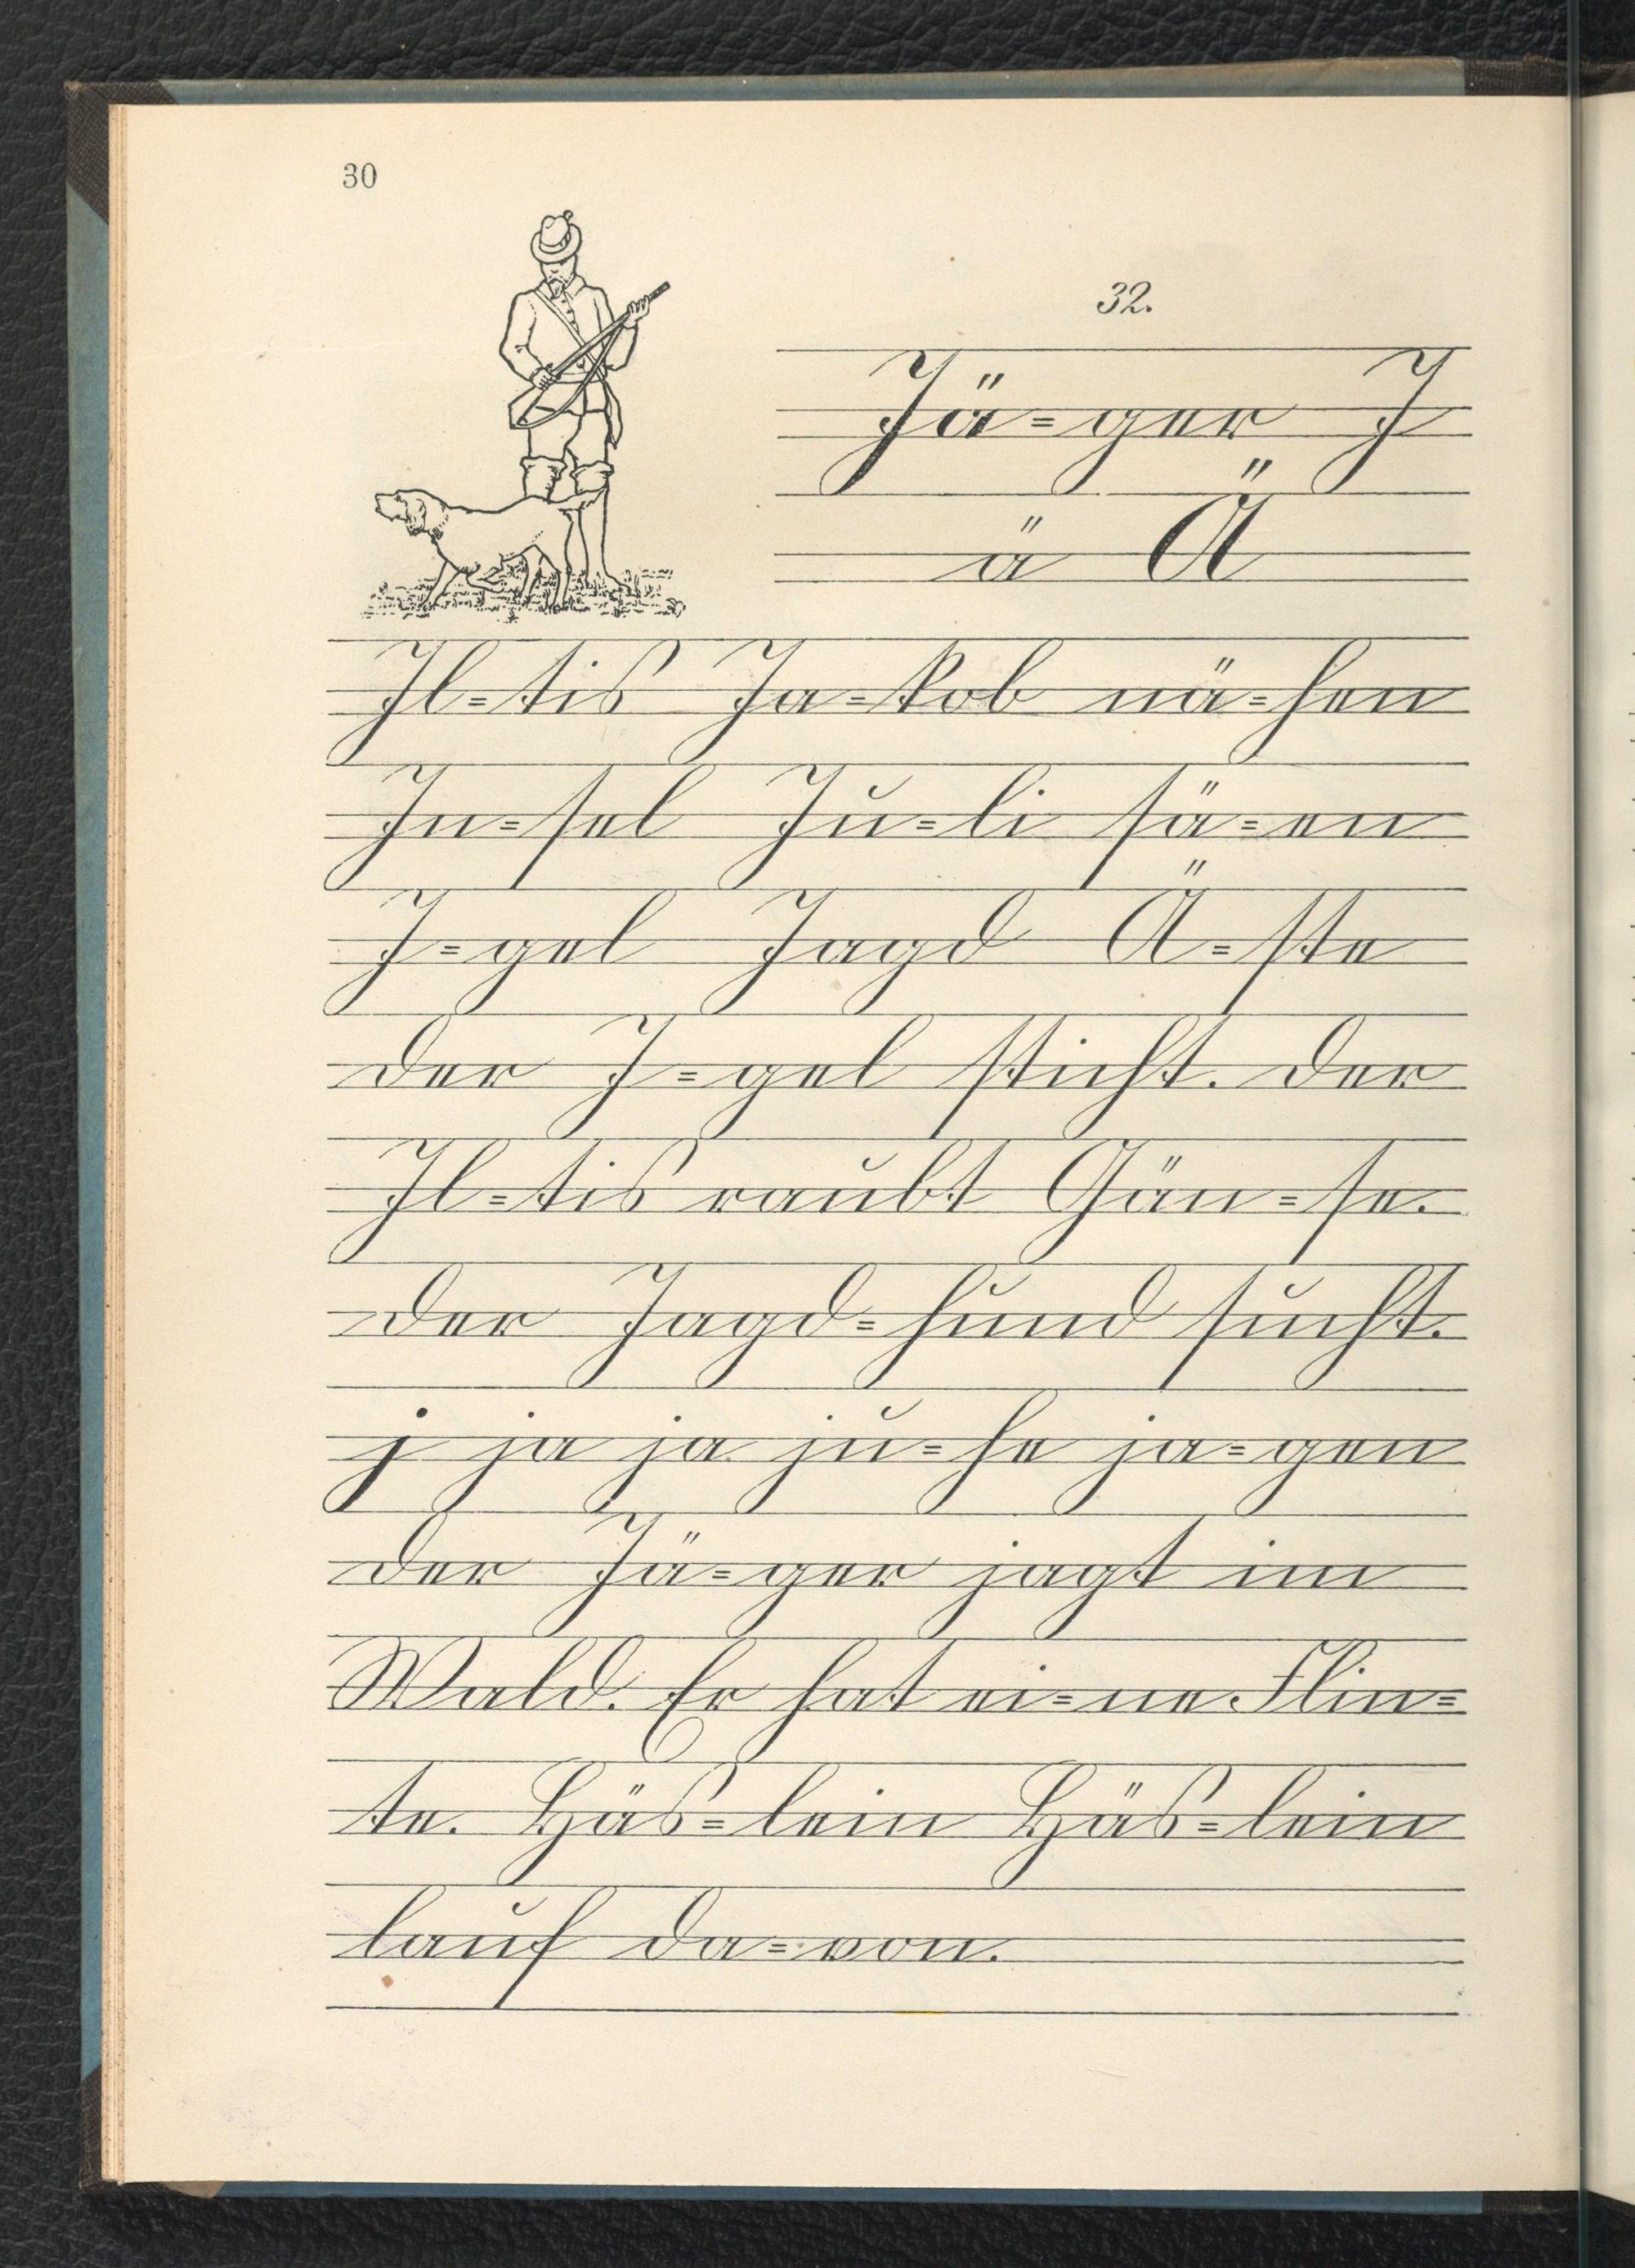 30
32.
Jä=ger J
ä Ä
Il=tis Ja=kob nä=hen
In=sel Ju=li sä=en
I=gel Jagd Ä=ste
der I=gel sticht. der
Il=tis raubt Gän=se.
der Jagd=hund sucht.
j ja ja ju=he ja=gen
der Jä=ger jagt im
Wald. Er hat ei=ne Flin=
te. Häs=lein Häs=lein
lauf da=von.